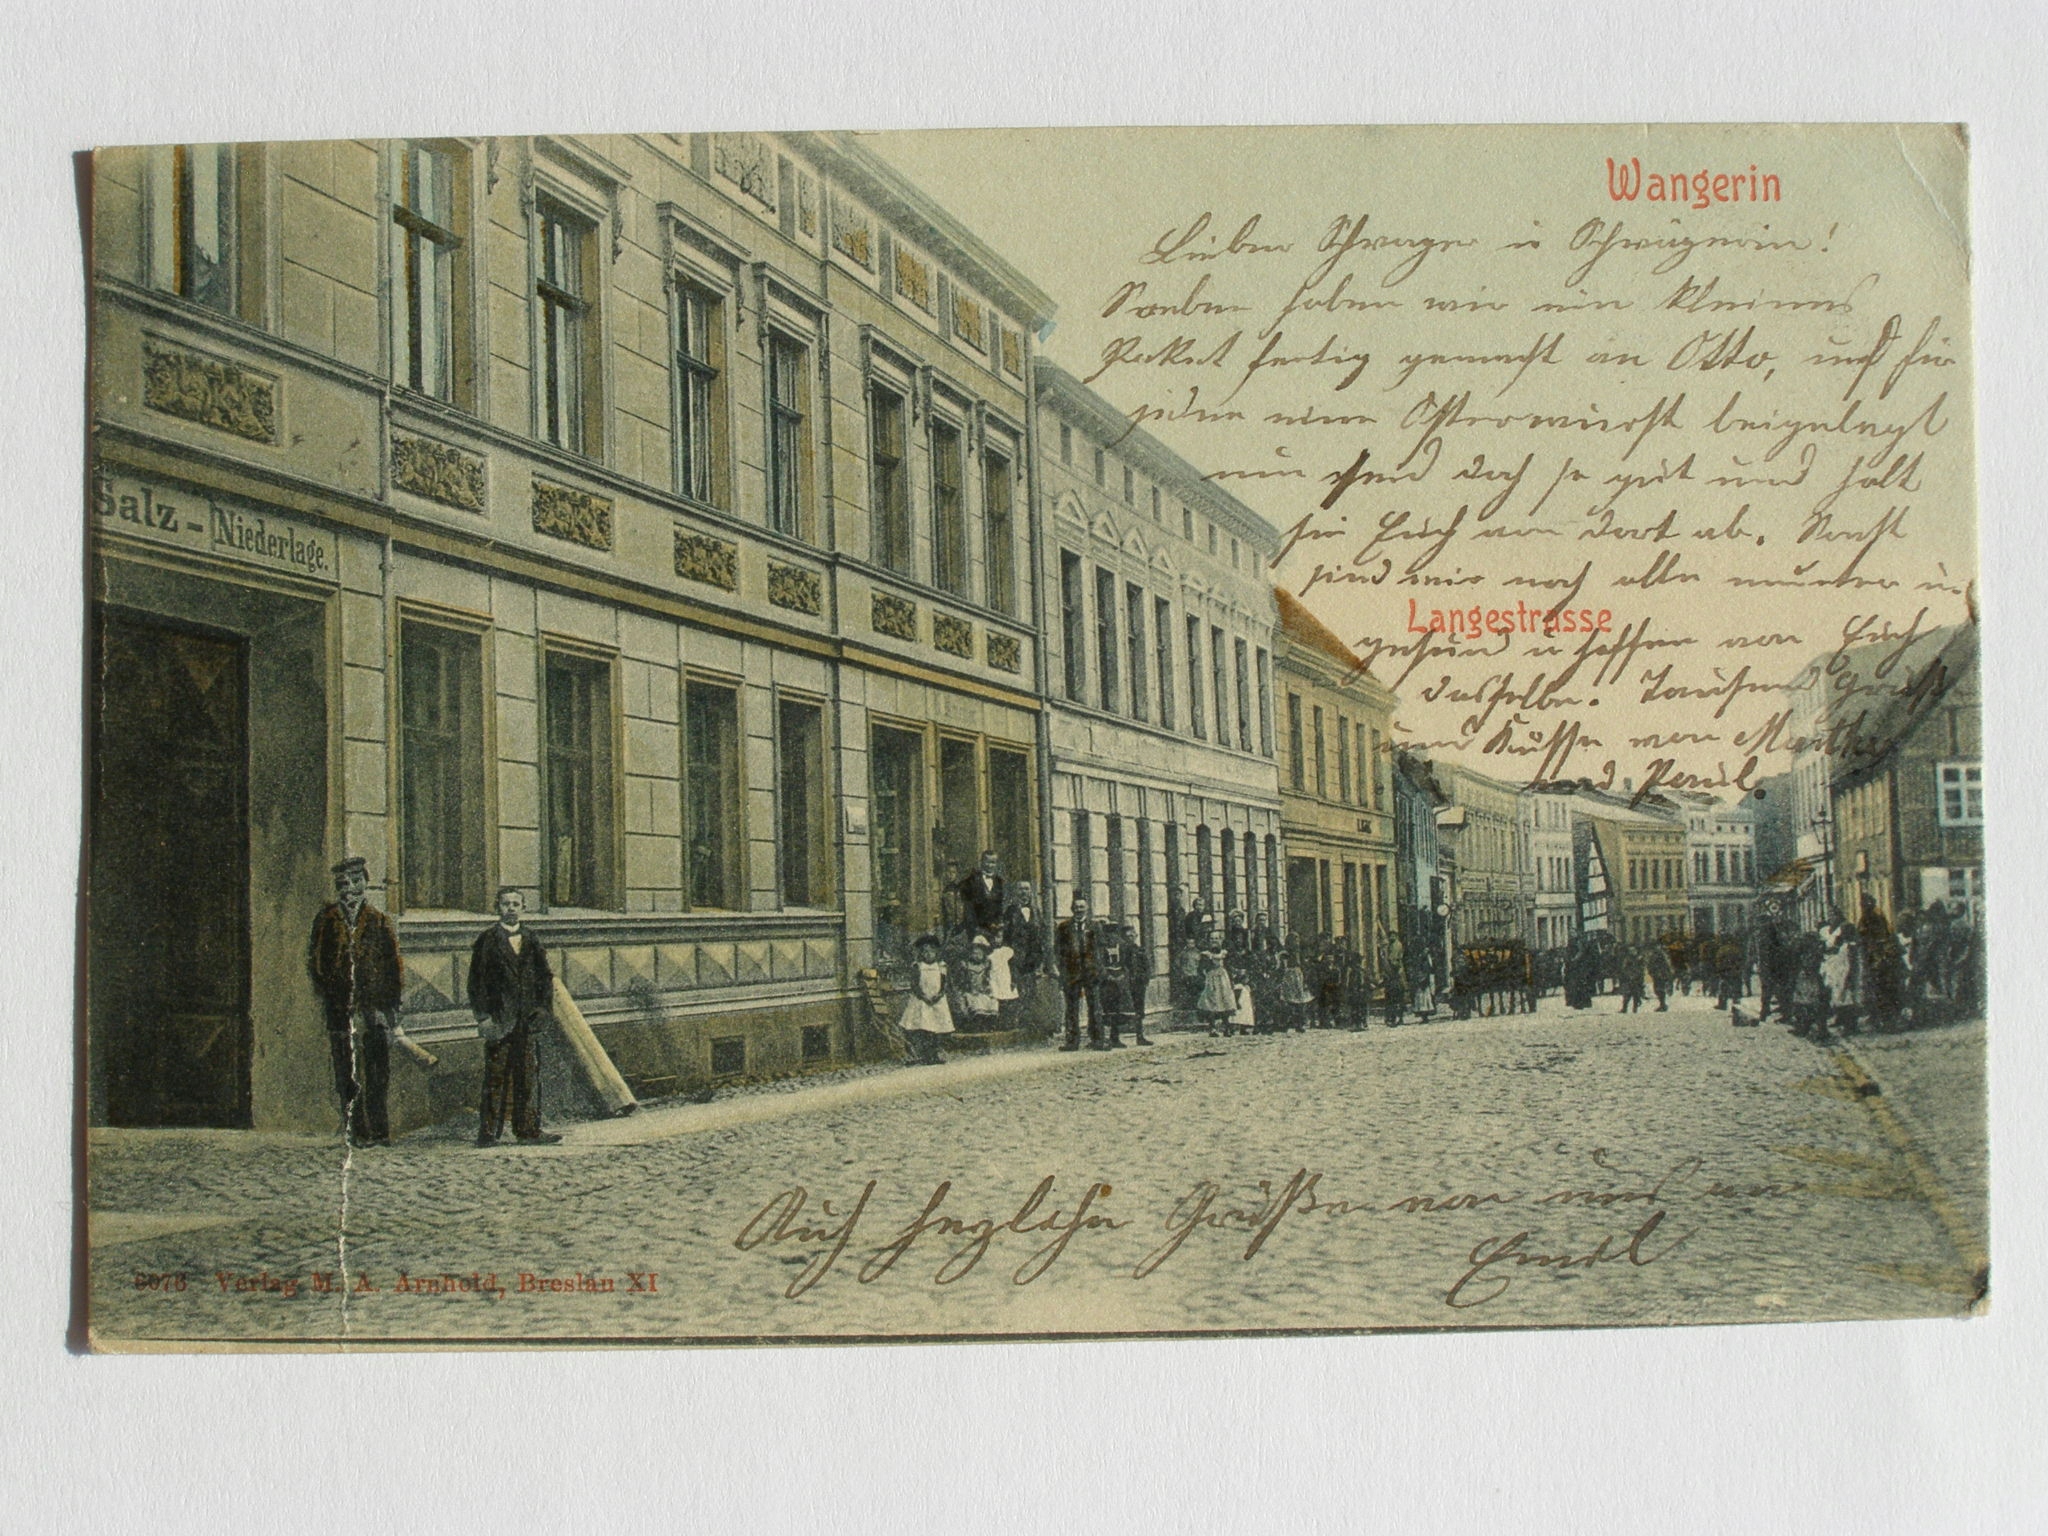 Wangerin
Lieber Schwager u Schwägerin!
Soeben haben wir ein kleines
Paket fertig gemacht an Otto, und für
jeden eine Osterwurst beigelegt
nun seid doch so gut und holt
sie Euch von dort ab. Sonst
sind wir noch alle munter u.
Langestrasse
gesund u hoffen von Euch
dasselbe. Tausend Grüße
und Küsse von Martha
und Paul.
Salz-Niederlage.
Auch herzliche Grüße von uns
Emil
Verlag M. A. Arnhold, Breslau XI